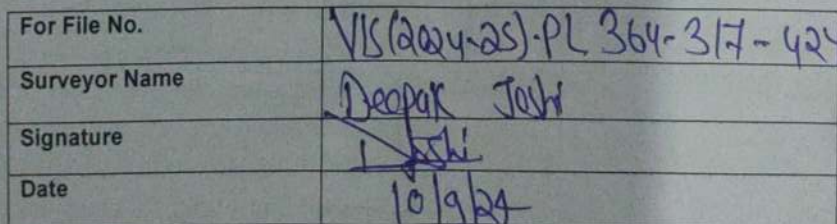 For File No. VIS(2024-25)-PL 364-317-42
Surveyor Name Deepak Joshi
Signature Joshi
Date 10/9/24